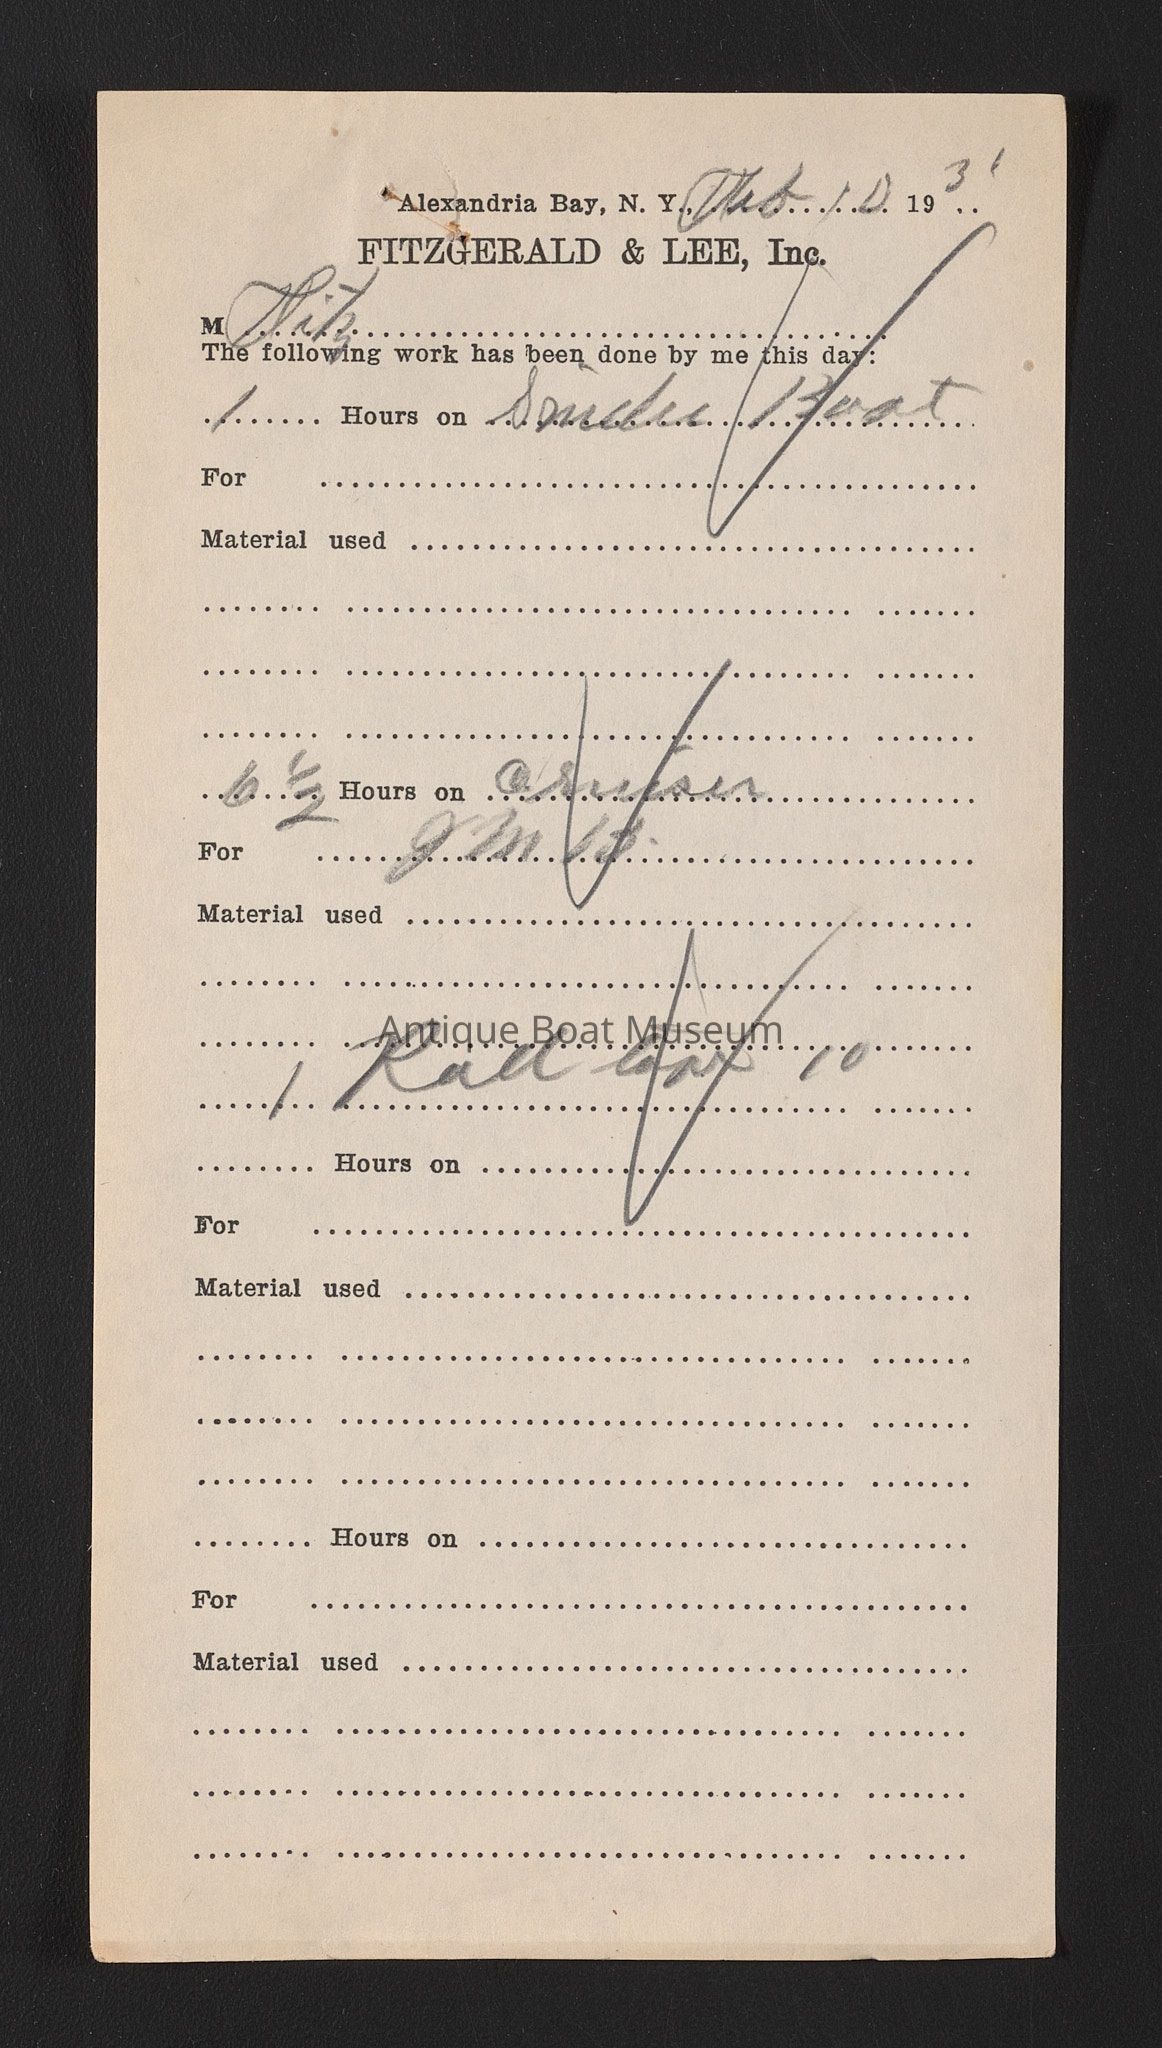 Alexandria Bay, N. Y., Feb 10 1931
FITZGERALD & LEE, Inc.
M Fitz
The following work has been done by me this day:
1 Hours on Boat
For
Material used
6 1/2 Hours on Cruiser
For
Material used
Antique Boat Museum
1 10
Hours on
For
Material used
Hours on
For
Material used